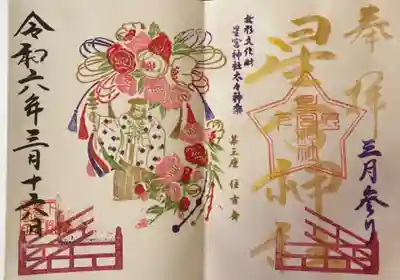 奉拝
星宮神社
三月参り
無形文化財
星宮神社太々神楽
第三座 住吉舞
令和六年三月十六日